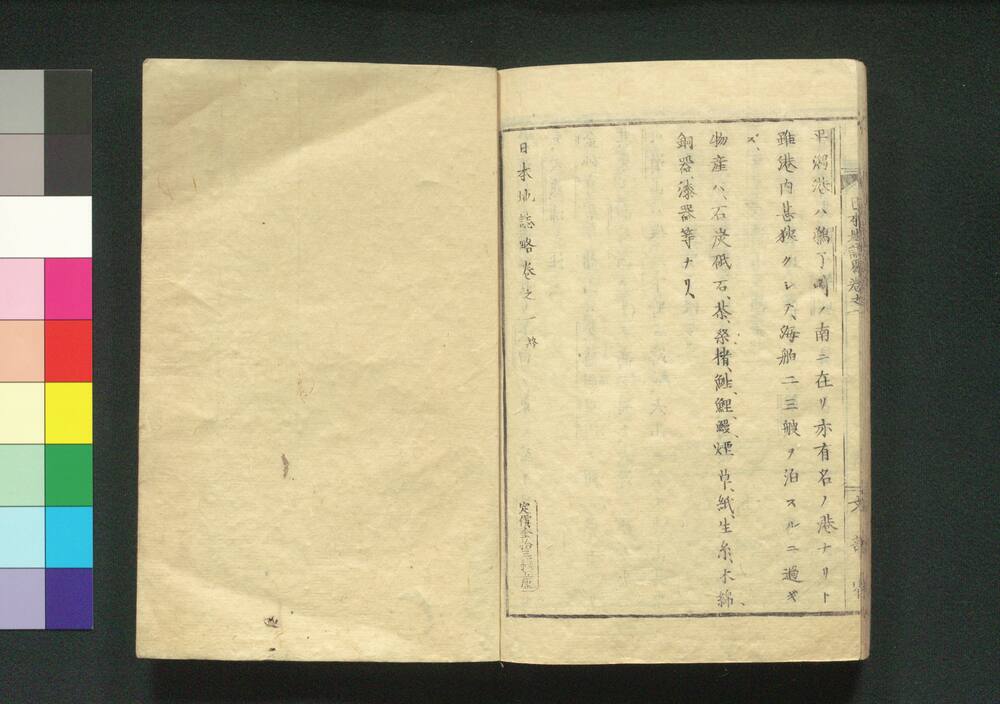 日本地誌略卷之一
文部省
平潟港ハ鵜ノ崎ノ南ニ在リ亦有名ノ港ナリト
雖港内甚狹クレテ、海舶二三艘ヲ泊スルニ過ギ
ズ、
物産ハ、石炭砥石、茶、桑楮、鮭鯉鰻、煙草、紙、生糸、木綿、
銅器漆器等ナリ、
日本地誌略卷之一終
定價金